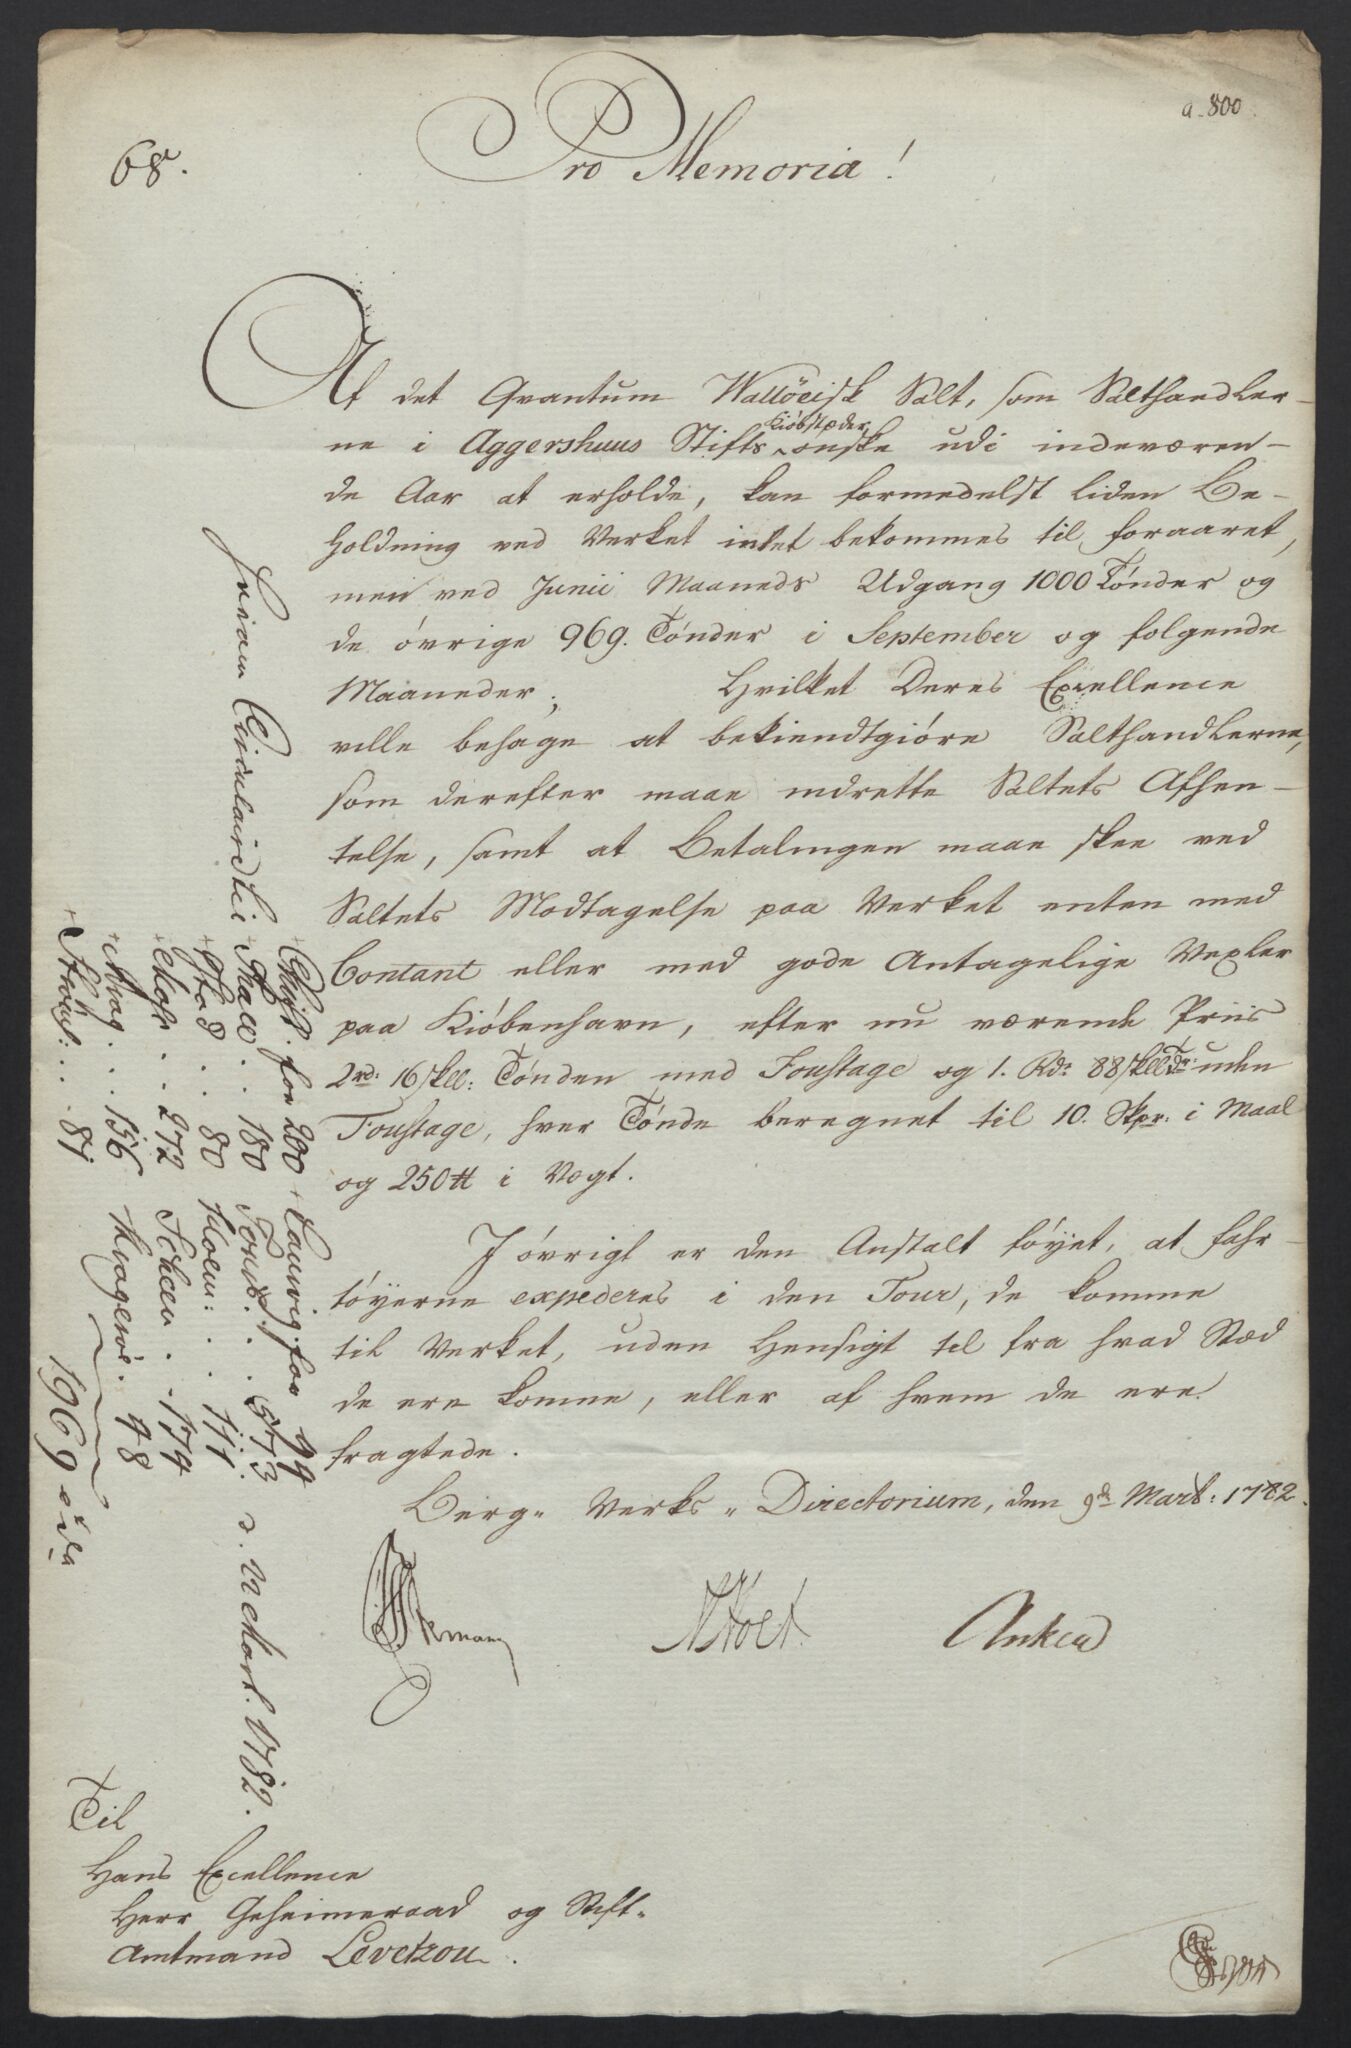 a. 800
68.
Pro Memoria!
Af det Qvantum Wallöeisk Salt, som Salthandler-
ne i Aggershuus Stifts Kiöbstæder, önske udi indeværen-
de Aar at erholde, kan formedelst liden Be-
holdning ved Verket intet bekommes til foraaret,
men ved Junii Maaneds Udgang 1000 Tönder og
de övrige 969. Tönder i September og folgende
Maaneder; Hvilket Deres Excellence
ville behage at bekiendtgiöre Salthandlerne,
som derefter maae indrette Saltets Afhen-
telse, samt at Betalingen maae skee ved
Saltets Modtagelse paa Verket enten med
Contant eller med gode Antagelige Vexler
paa Kiöbenhavn, efter nu værende Priis
2rd: 16 skll: Tönden med Foustage og 1. Rdr 88 skll Tdr: uden
Foustage, hver Tönde beregnet til 10. Skpr: i Maal
og 250 ℔ i Vægt.
I övrigt er den Anstalt föyet, at fahr-
töyerne expederes i den Tour, de komme
til Verket, uden Hensigt til fra hvad Stæd
de ere komne, eller af hvem de ere
fragtede.
Berg- Verks- Directorium, den 9de Mart: 1782.
NHolt. Anker
Til
Hans Excellence
Herr Geheimeraad og Stift-
Amtmand Levetzou.
Circulaire til
+ Chrst. for 200 + Laurvig. for 94
+ 180
+ 80 111.
+ Mos . . 272 Skeen . . 174
+ Drag . . 156 Krageröe. 48
+ . . 81
1969 tdr
d. 22 Mart. 1782.